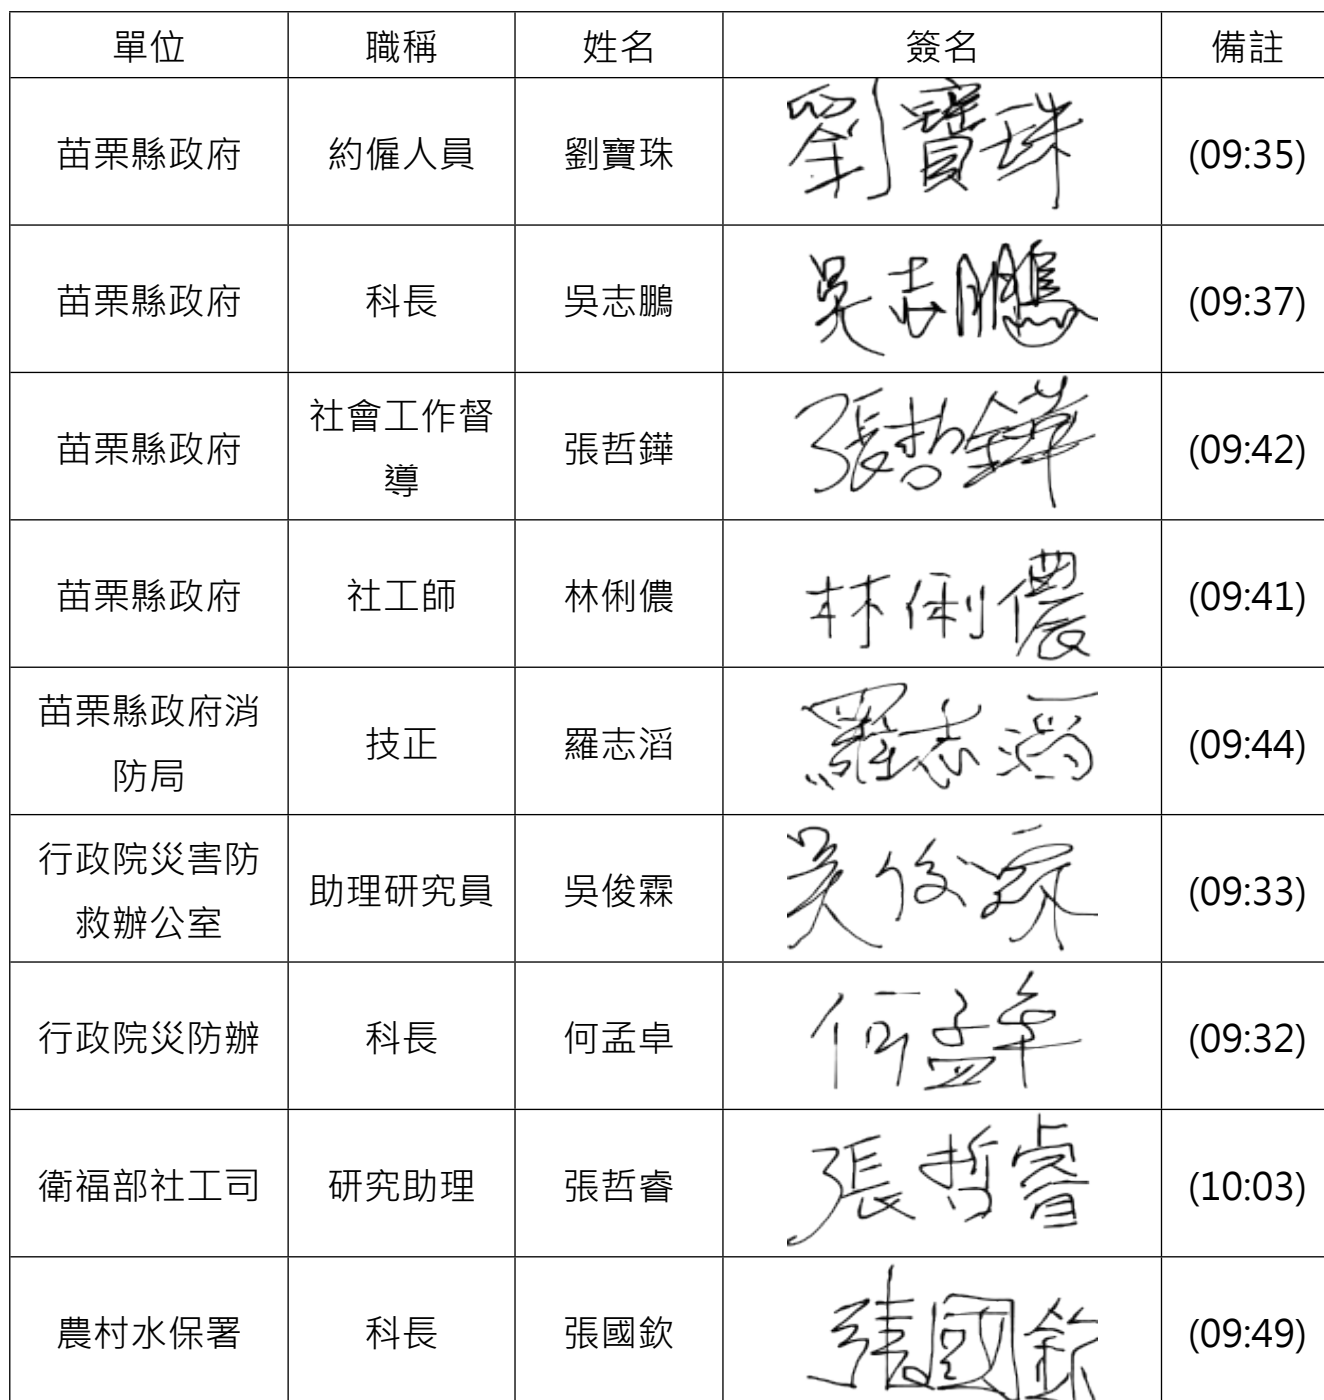 單位 職稱 姓名 簽名 備註
苗栗縣政府 約僱人員 劉寶珠 劉寶珠 (09:35)
苗栗縣政府 科長 吳志鵬 吳志鵬 (09:37)
苗栗縣政府 社會工作督
導 張哲鏵 張哲鏵 (09:42)
苗栗縣政府 社工師 林俐儂 林俐儂 (09:41)
苗栗縣政府消
防局 技正 羅志滔 羅志滔 (09:44)
行政院災害防
救辦公室 助理研究員 吳俊霖 吳俊霖 (09:33)
行政院災防辦 科長 何孟卓 何孟卓 (09:32)
衛福部社工司 研究助理 張哲睿 張哲睿 (10:03)
農村水保署 科長 張國欽 張國欽 (09:49)